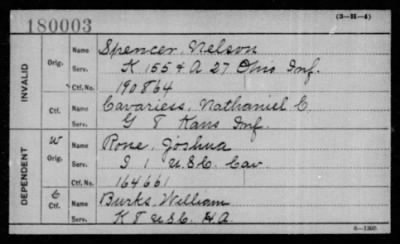 (3—H—4)
180003
INVALID
Orig. Name Spencer, Nelson
Serv. K 155 & A 27 Ohio Inf.
Ctf. No. 190864
Ctf. Name Cavariess, Nathaniel C.
Serv. G 8 Kans Inf.
DEPENDENT
W Orig. Name Rone, Joshua
Serv. I 1 U.S.C. Cav.
Ctf. No. 164661
C Ctf. Name Burks, William
Serv. K 8 U.S.C. H.A.